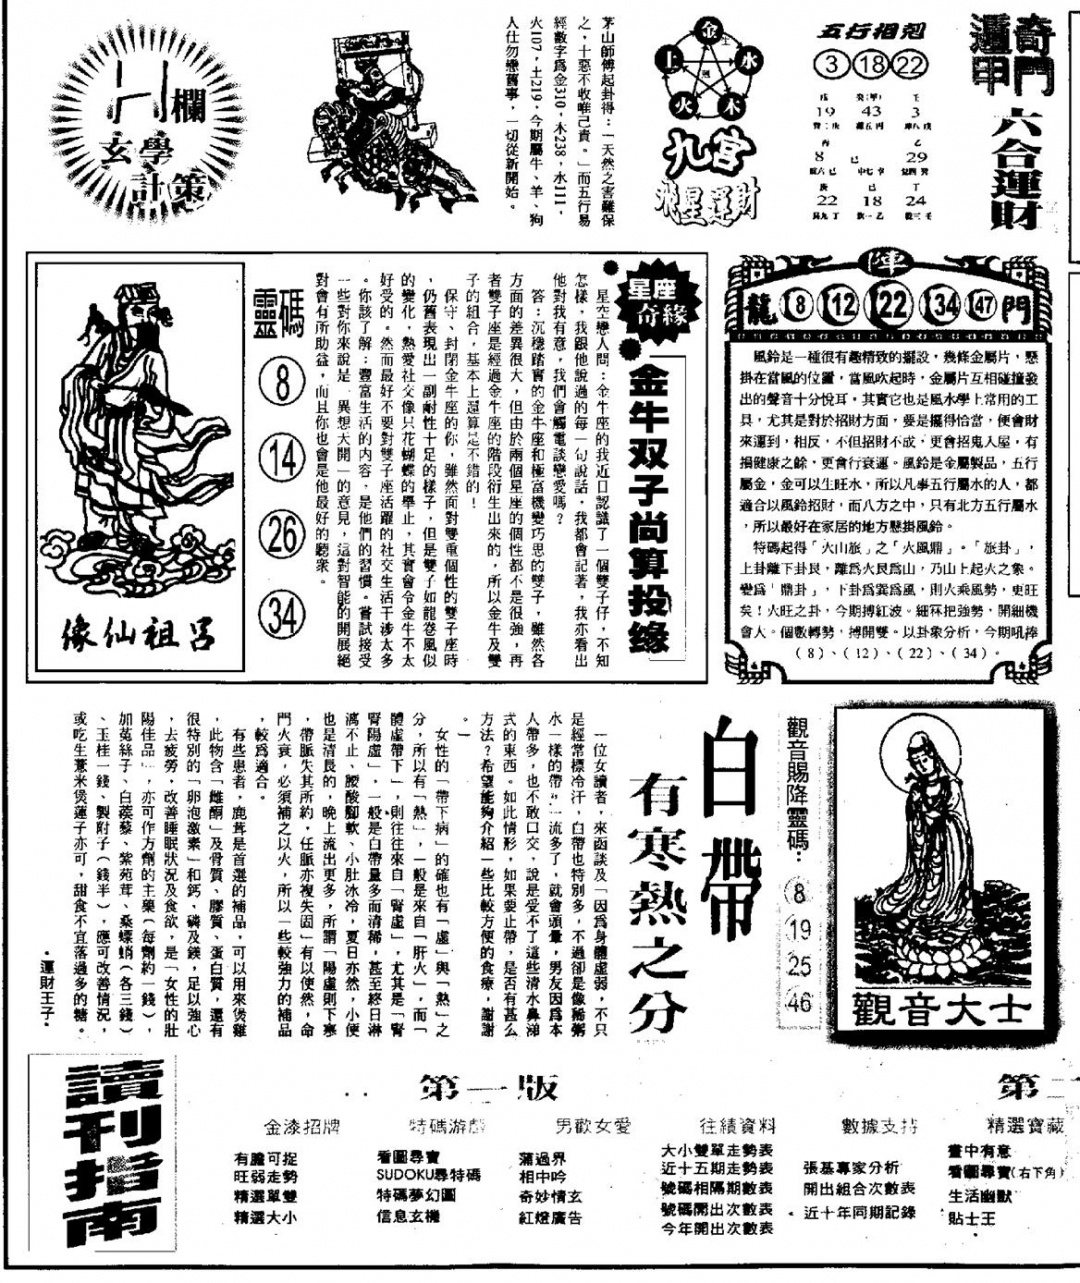 奇門
遁甲
六合運財
五行相剋
3 18 22
19 43 3
8 29
22 18 24
金
水
木
火
土
九宮
飛星運財
茅山師傅起卦得：「天然之害難保
之，十惡不收唯己責。」而五行易
經數字爲金310，木238，水111，
火107，土219，今期屬牛、羊、狗
人仕勿戀舊事，一切從新開始。
H欄
玄學
計策
陣
龍 8 12 22 34 47 門
風鈴是一種很有趣精致的擺設，幾條金屬片，懸
掛在當風的位置，當風吹起時，金屬片互相碰撞發
出的聲音十分悅耳，其實它也是風水學上常用的工
具，尤其是對於招財方面，要是擺得恰當，便會財
來運到，相反，不但招財不成，更會招鬼入屋，有
損健康之餘，更會行衰運。風鈴是金屬製品，五行
屬金，金可以生旺水，所以凡事五行屬水的人，都
適合以風鈴招財，而八方之中，只有北方五行屬水
，所以最好在家居的地方懸掛風鈴。
特碼起得「火山旅」之「火風鼎」。「旅卦」，
上卦離下卦艮，離爲火艮爲山，乃山上起火之象。
變爲「鼎卦」，下卦爲巽爲風，則火乘風勢，更旺
矣！火旺之卦，今期搏紅波。細冧把強勢，開細機
會大。個數轉勢，搏開雙。以卦象分析，今期吼捧
（8）、（12）、（22）、（34）。
星座
奇緣
金牛双子尚算投缘
星空戀人問：金牛座的我近日認識了一個雙子仔，不知
怎樣，我跟他說過的每一句說話，我都會記著，我亦看出
他對我有意，我們會觸電談戀愛嗎？
答：沉穩踏實的金牛座和極富機變巧思的雙子，雖然各
方面的差異很大，但由於兩個星座的個性都不是很強，再
者雙子座是經過金牛座的階段衍生出來的，所以金牛及雙
子的組合，基本上還算是不錯的！
保守、封閉金牛座的你，雖然面對雙重個性的雙子座時
，仍舊表現出一副耐性十足的樣子，但是雙子如龍卷風似
的變化，熱愛社交像只花蝴蝶的舉止，其實會令金牛不太
好受的。然而最好不要對雙子座活躍的社交生活干涉太多
。你該了解：豐富生活的内容，是他們的習慣。嘗試接受
一些對你來說是「異想天開」的意見，這對智能的開展絕
對會有所助益，而且你也會是他最好的聽衆。
靈碼
8
14
26
34
呂祖仙像
觀音大士
觀音賜降靈碼：
8
19
25
46
白帶
有寒熱之分
一位女讀者，來函談及「因爲身體虛弱，不只
是經常標冷汗，白帶也特別多，不過卻是像稀粥
水一樣的帶」一流多了，就會頭暈，男友因爲本
人帶多，也不敢口交，說是受不了這些清水鼻涕
式的東西。如此情形，如果要止帶，是否有甚么
方法？希望能夠介紹一些比較方便的食療，謝謝
。
女性的「帶下病」的確也有「虛」與「熱」之
分，所以有「熱」，一般是來自「肝火」，而「
體虛帶下」，則往往來自「腎虛」，尤其是「腎
腎陽虛」，一般是白帶量多而清稀，甚至終日淋
漓不止、腰酸腳軟、小肚冰冷，夏日亦然，小便
也是清長的，晚上流出更多，所謂「陽虛則下寒
，帶脈失其所約，任脈亦複失固」有以使然，命
門火衰，必須補之以火，所以一些較強力的補品
，較爲適合。
有些患者，鹿茸是首選的補品，可以用來煲雞
，此物含「雌酮」及骨質、膠質、蛋白質，還有
很特別的「卵泡激素」和鈣、磷及鎂，足以強心
，去疲勞，改善睡眠狀況及食欲，是「女性的壯
陽佳品」，亦可作方劑的主藥（每劑約一錢），
加菟絲子、白蒺藜、紫苑茸、桑螵蛸（各三錢）
、玉桂一錢、製附子（錢半），應可改善情況，
或吃生薏米煲蓮子亦可，甜食不宜落過多的糖。
·運財王子·
讀刊指南
第一版
金漆招牌
有膽可捉
旺弱走勢
精選單雙
精選大小
特碼游戲
看圖尋寶
SUDOKU尋特碼
特碼夢幻圖
信息玄機
男歡女愛
蒲過界
相中吟
奇妙情玄
紅燈廣告
往績資料
大小雙單走勢表
近十五期走勢表
號碼相隔期數表
號碼開出次數表
今年開出次數表
數據支持
張基專家分析
開出組合次數表
近十年同期記錄
第二
精選寶藏
畫中有意
看圖尋寶(右下角)
生活幽默
貼士王